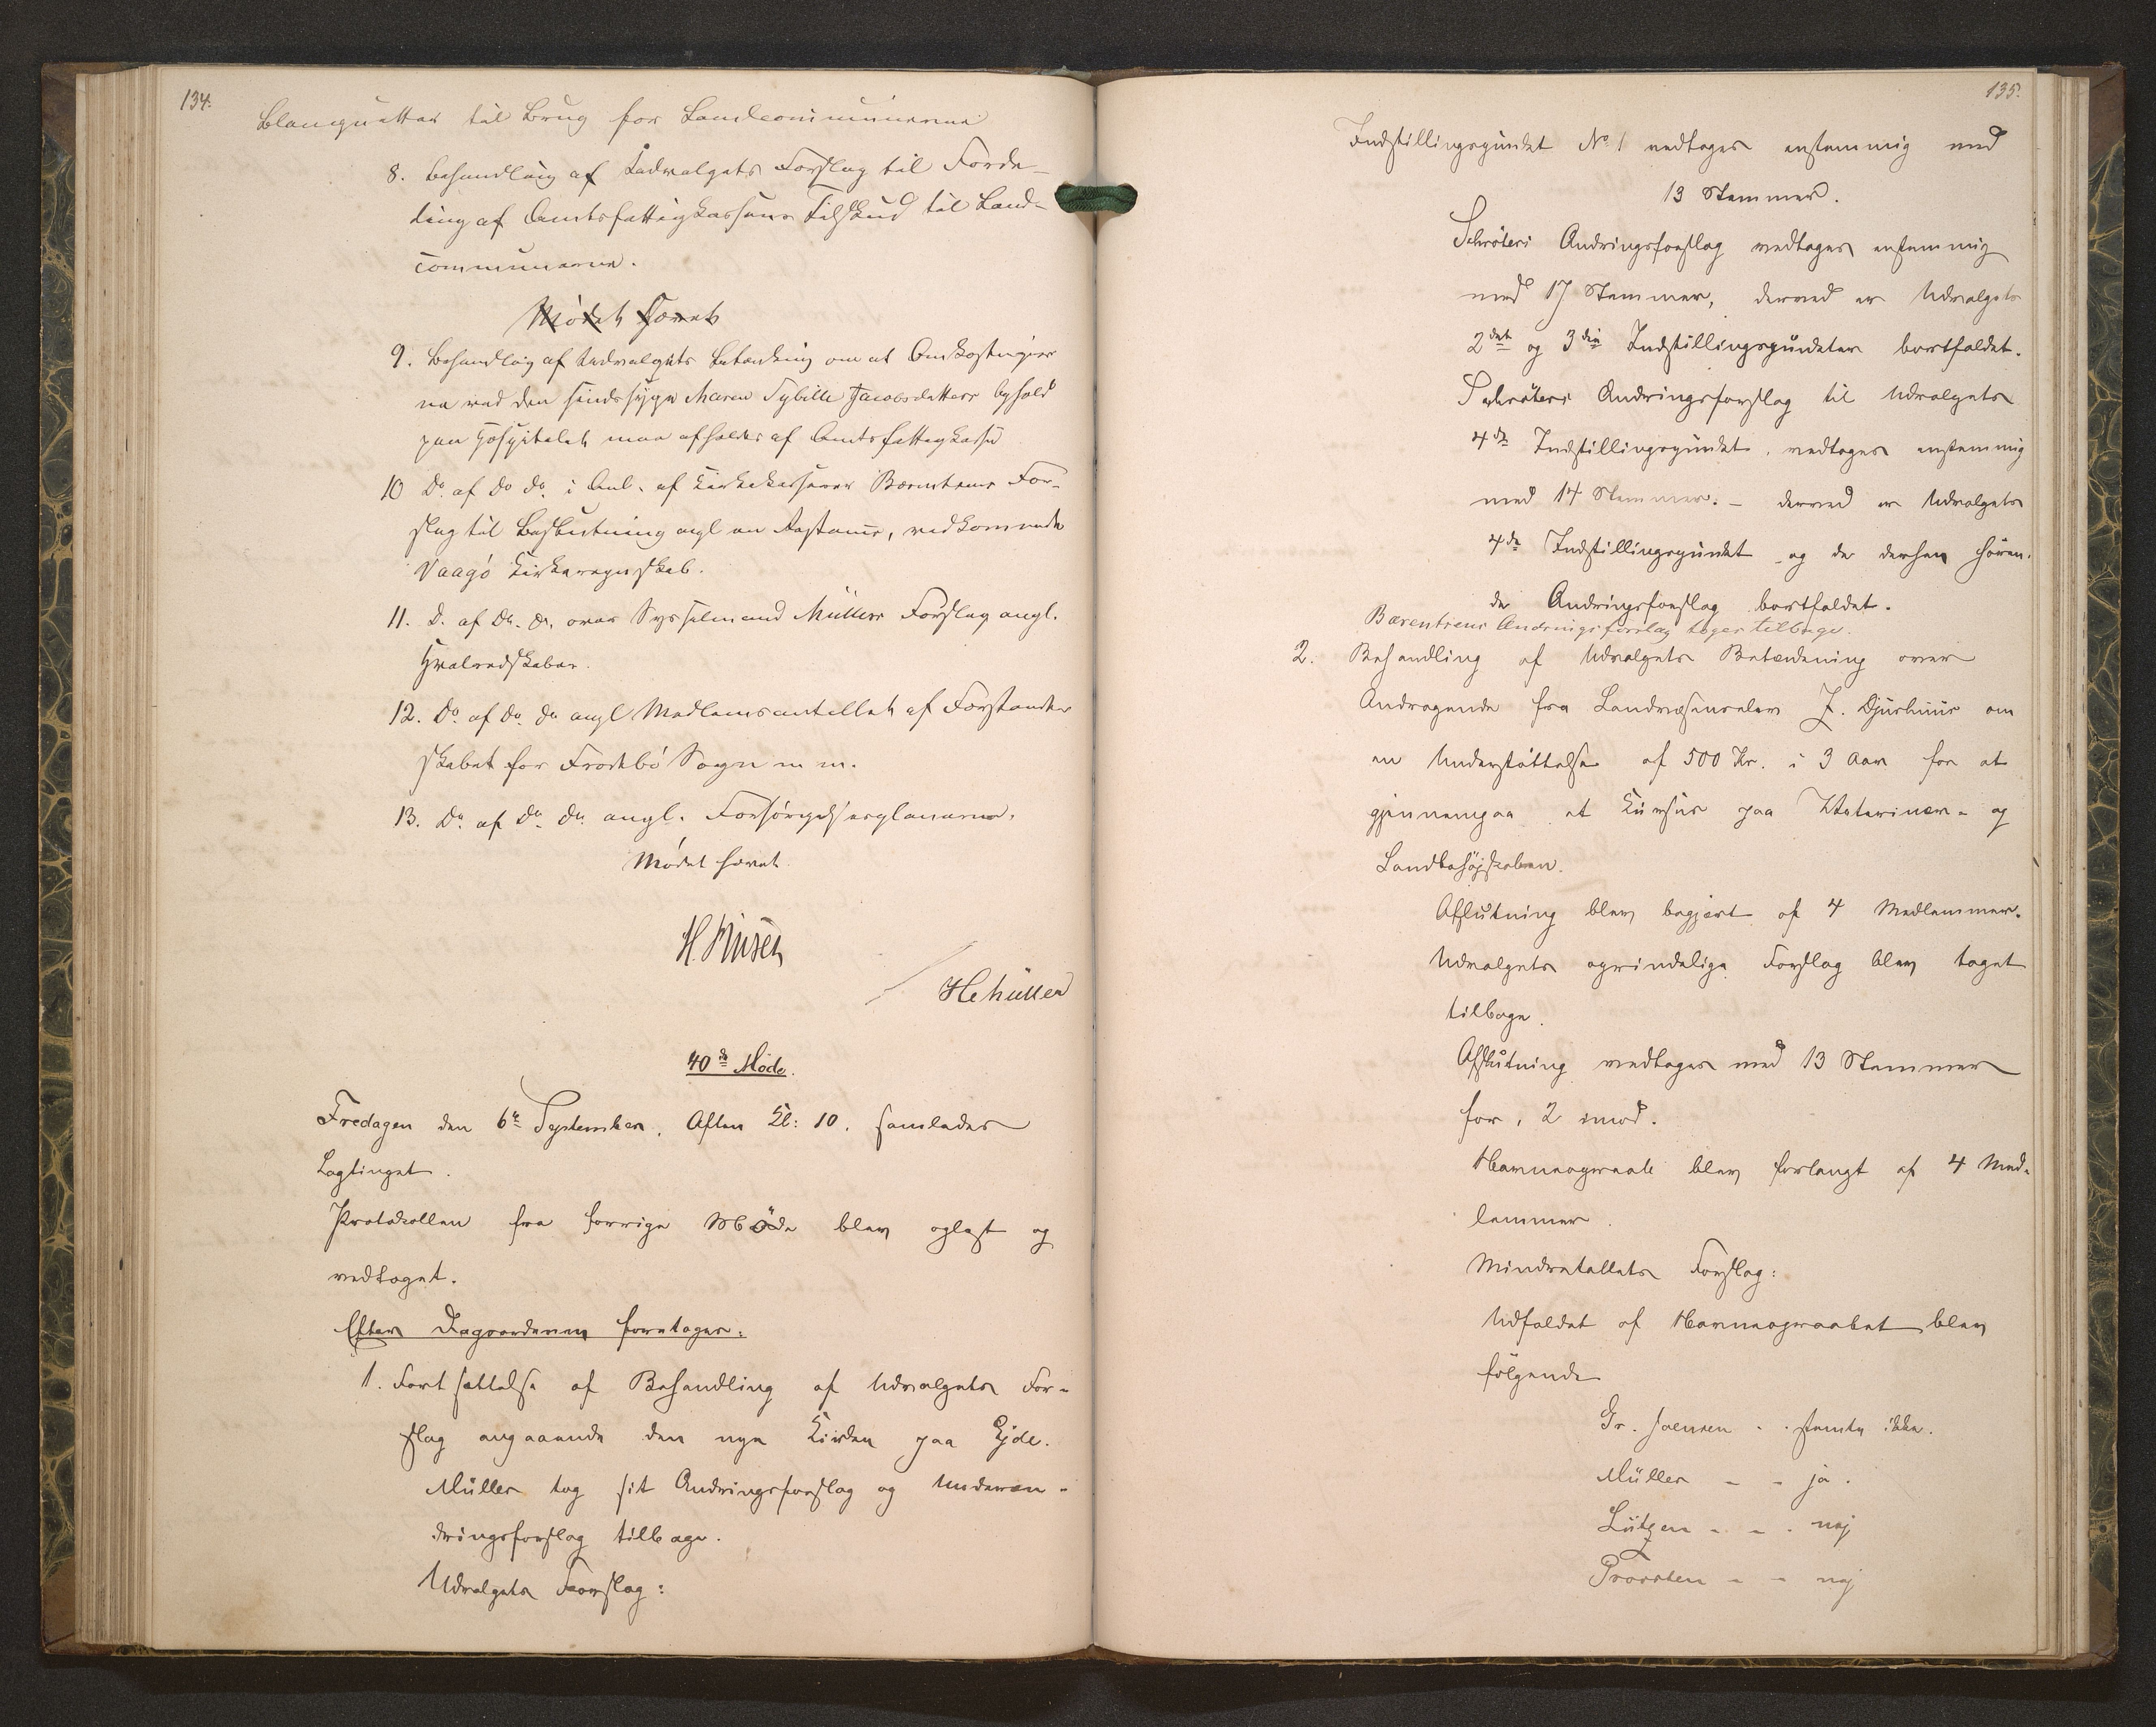 134.
Blanquetter til Brug for Landcommunerne
8. Behandling af Udvalgets Forslag til Forde-
ling af Amtsfattigkassens Tilskud til Land-
communerne.
Mödet hævet
9. Behandling af Udvalgets Betænkning om at Omkostninger
ne ved den sindssyge Maren Sybille Jacobsdatters Ophold
paa Hospitalet maa afholdes af Amtsfattigkassen
10 Do. af do do. i Anl. af Kirkekasserer Bærentsens For-
slag til Beslutning angl en Restance, vedkommende
Vaagö Kirkeregnskab.
11. D. af do. do. over Sysselmand Müllers Forslag angl.
Hvalredskaber.
12. Do. af do. do angl Medlemsantallet af Forstander
skabet for Frodebö Sogn m m.
13. Do. af do. do. angl. Forsörgelsesplanerne.
Mödet hævet.
H. Finsen
HCMüller
40de Möde.
Fredagen den 6te September. Aften Kl: 10. samledes
Lagtinget.
Protokollen fra forrige Möde blev oplæst og
vedtaget.
Efter Dagsordenen foretages:
1. Fortsættelse af Behandling af Udvalgets For-
slag angaaende den nye Kirken paa Ejde.
Müller tog sit Ændringsforslag og Underæn-
dringsforslag tilbage.
Udvalgets Forslag:
135.
Indstillingspunkt No. 1 vedtages enstemmig med
13 Stemmer.
Schröters Ændringsforslag vedtages enstemmig
med 17 Stemmer, derved er Udvalgets
2det og 3die Indstillingspunkter bortfaldet.
Schröters Ændringsforslag til Udvalgets
4de Indstillingspunkt, vedtages enstemmig
med 14 Stemmer. - derved er Udvalgets
4de Indstillingspunkt og de derhen hören-
de Ændringsforslag bortfaldet.
Bærentsens Ændringsforslag tages tilbage.
2. Behandling af Udvalgets Betænkning over
Andragende fra Landvæsenselev J. Djurhuus om
en Understöttelse af 500 Kr. i 3 Aar for at
gjennemgaa et Kursus paa Veterinær- og
Landbohöjskolen.
Afslutning blev begjært af 4 Medlemmer.
Udvalgets oprindelige Forslag blev taget
tilbage.
Afslutning vedtages med 13 Stemmer
for, 2 imod.
Navneopraab blev forlangt af 4 Med-
lemmer.
Mindretallets Forslag:
Udfaldet af Navneopraabet blev
fölgende
Gr. Joensen - - stemte ikke.
Müller - - ja.
Lützen - - - nej
Provsten - - nej